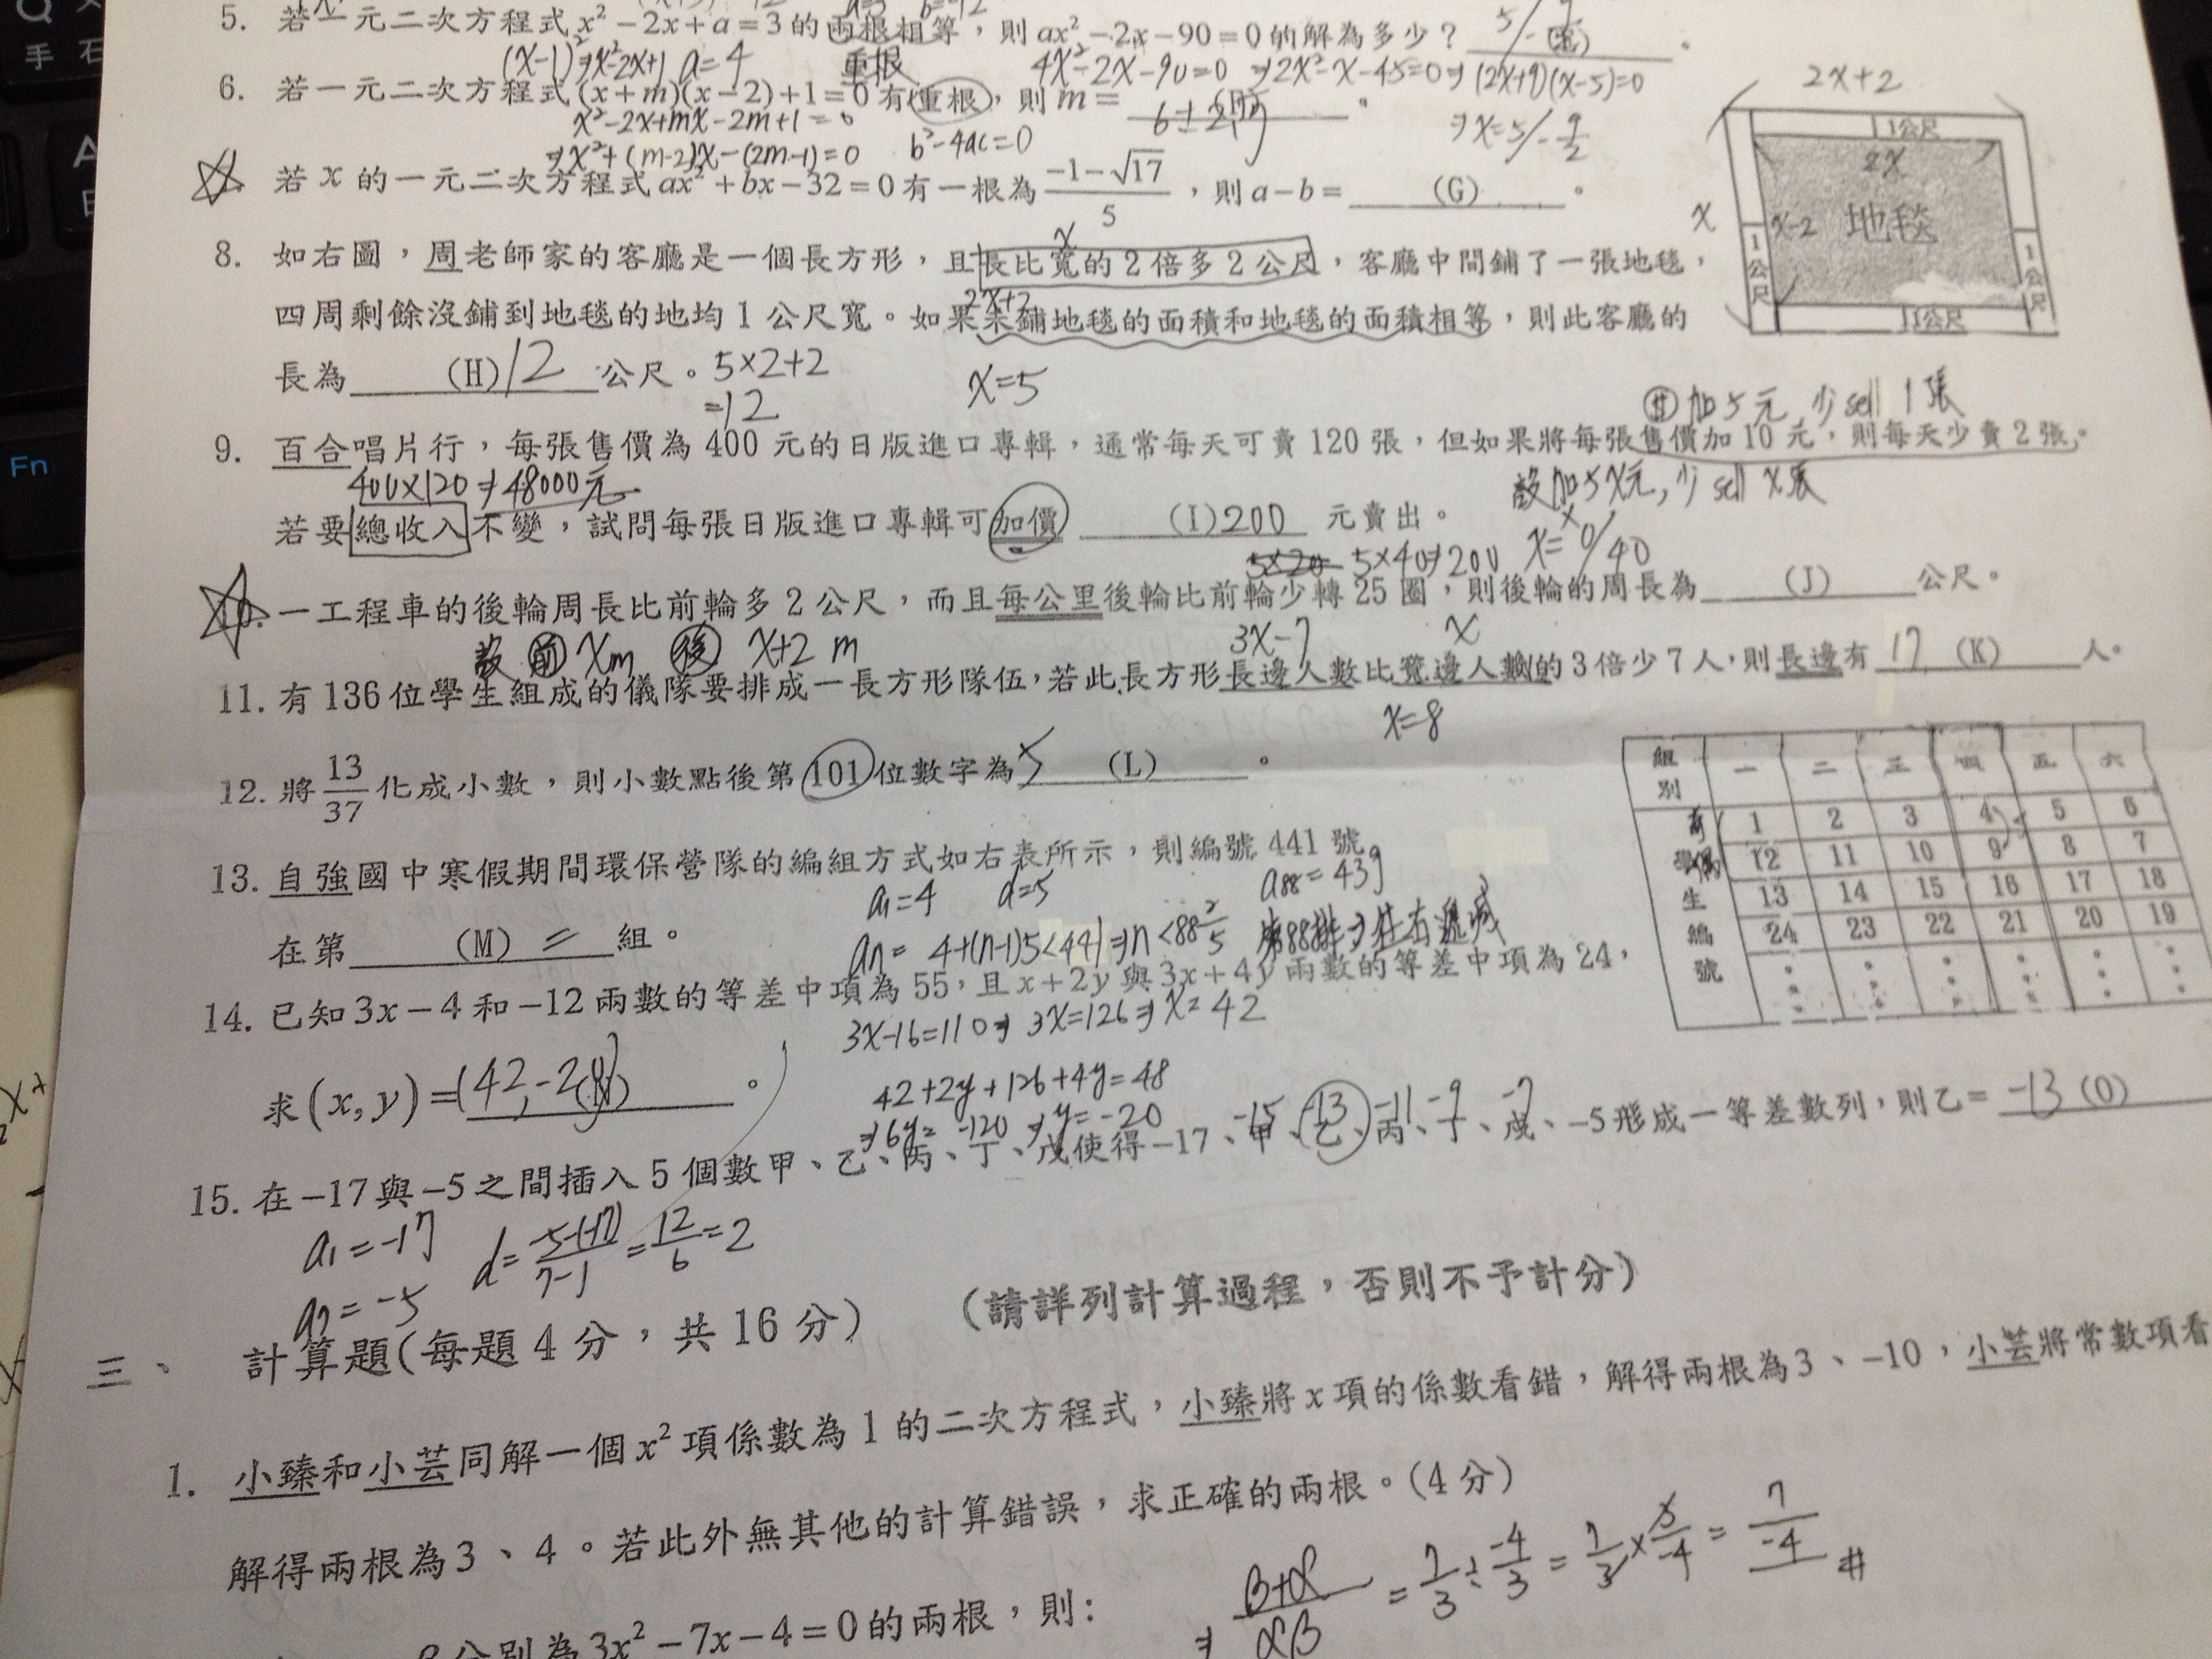 5. 若一元二次方程式 x² − 2x + a = 3 的兩根相等，則 ax² − 2x − 90 = 0 的解為多少？
(x-1)²⇒x²-2x+1 a=4 重根 4x²-2x-90=0 ⇒2x²-x-45=0⇒(2x+9)(x-5)=0
⇒x=5/-9/2
6. 若一元二次方程式 (x+m)(x−2)+1=0 有重根，則 m =
x²-2x+mx-2m+1=0
⇒x²+(m-2)x-(2m-1)=0 b²-4ac=0
若 x 的一元二次方程式 ax² + bx − 32 = 0 有一根為 (−1−√17)/5，則 a − b = (G)。
8. 如右圖，周老師家的客廳是一個長方形，且長比寬的 2 倍多 2 公尺，客廳中間鋪了一張地毯，
2x+2
四周剩餘沒鋪到地毯的地均 1 公尺寬。如果未鋪地毯的面積和地毯的面積相等，則此客廳的
長為 (H) 12 公尺。 5×2+2
=12
x=5
2x+2
1公尺
2x
x
x-2
地毯
1公尺
1公尺
1公尺
加5元，少sell 1張
9. 百合唱片行，每張售價為 400 元的日版進口專輯，通常每天可賣 120 張，但如果將每張售價加 10 元，則每天少賣 2 張。
400×120⇒48000元
設加5x元，少sell x張
若要總收入不變，試問每張日版進口專輯可加價 (I) 200 元賣出。
5×20 5×40⇒200 x=0/40
10. 一工程車的後輪周長比前輪多 2 公尺，而且每公里後輪比前輪少轉 25 圈，則後輪的周長為 (J) 公尺。
設 前 xm 後 x+2 m
3x-7 x
11. 有 136 位學生組成的儀隊要排成一長方形隊伍，若此長方形長邊人數比寬邊人數的 3 倍少 7 人，則長邊有 17 (K) 人。
x=8
12. 將 13/37 化成小數，則小數點後第 101 位數字為 5 (L)。
13. 自強國中寒假期間環保營隊的編組方式如右表所示，則編號 441 號
a₁=4 d=5 a₈₈=439
在第 (M) 二 組。
an= 4+(n-1)5<441⇒n<88 2/5
組別 一 二 三 四 五 六
學生編號
1 2 3 4 5 6
12 11 10 9 8 7
13 14 15 16 17 18
24 23 22 21 20 19
14. 已知 3x − 4 和 −12 兩數的等差中項為 55，且 x + 2y 與 3x + 4y 兩數的等差中項為 24，
3x-16=110⇒3x=126⇒x=42
求 (x, y) = (42,-20)。
42+2y+126+4y=48
⇒6y=-120⇒y=-20
-15 -13 -11 -9 -7
15. 在 −17 與 −5 之間插入 5 個數甲、乙、丙、丁、戊使得 −17、甲、乙、丙、丁、戊、−5 形成一等差數列，則乙 = -13 (O)
a₁=-17 d=(-5-(-17))/(7-1)=12/6=2
a₇=-5
三、 計算題(每題 4 分，共 16 分) (請詳列計算過程，否則不予計分)
1. 小臻和小芸同解一個 x² 項係數為 1 的二次方程式，小臻將 x 項的係數看錯，解得兩根為 3、−10，小芸將常數項看
解得兩根為 3、4。若此外無其他的計算錯誤，求正確的兩根。(4 分)
分別為 3x² − 7x − 4 = 0 的兩根，則:
⇒ (β+α)/(αβ) = 7/3 ÷ -4/3 = 7/3 × 3/-4 = 7/-4 #
手
Fn